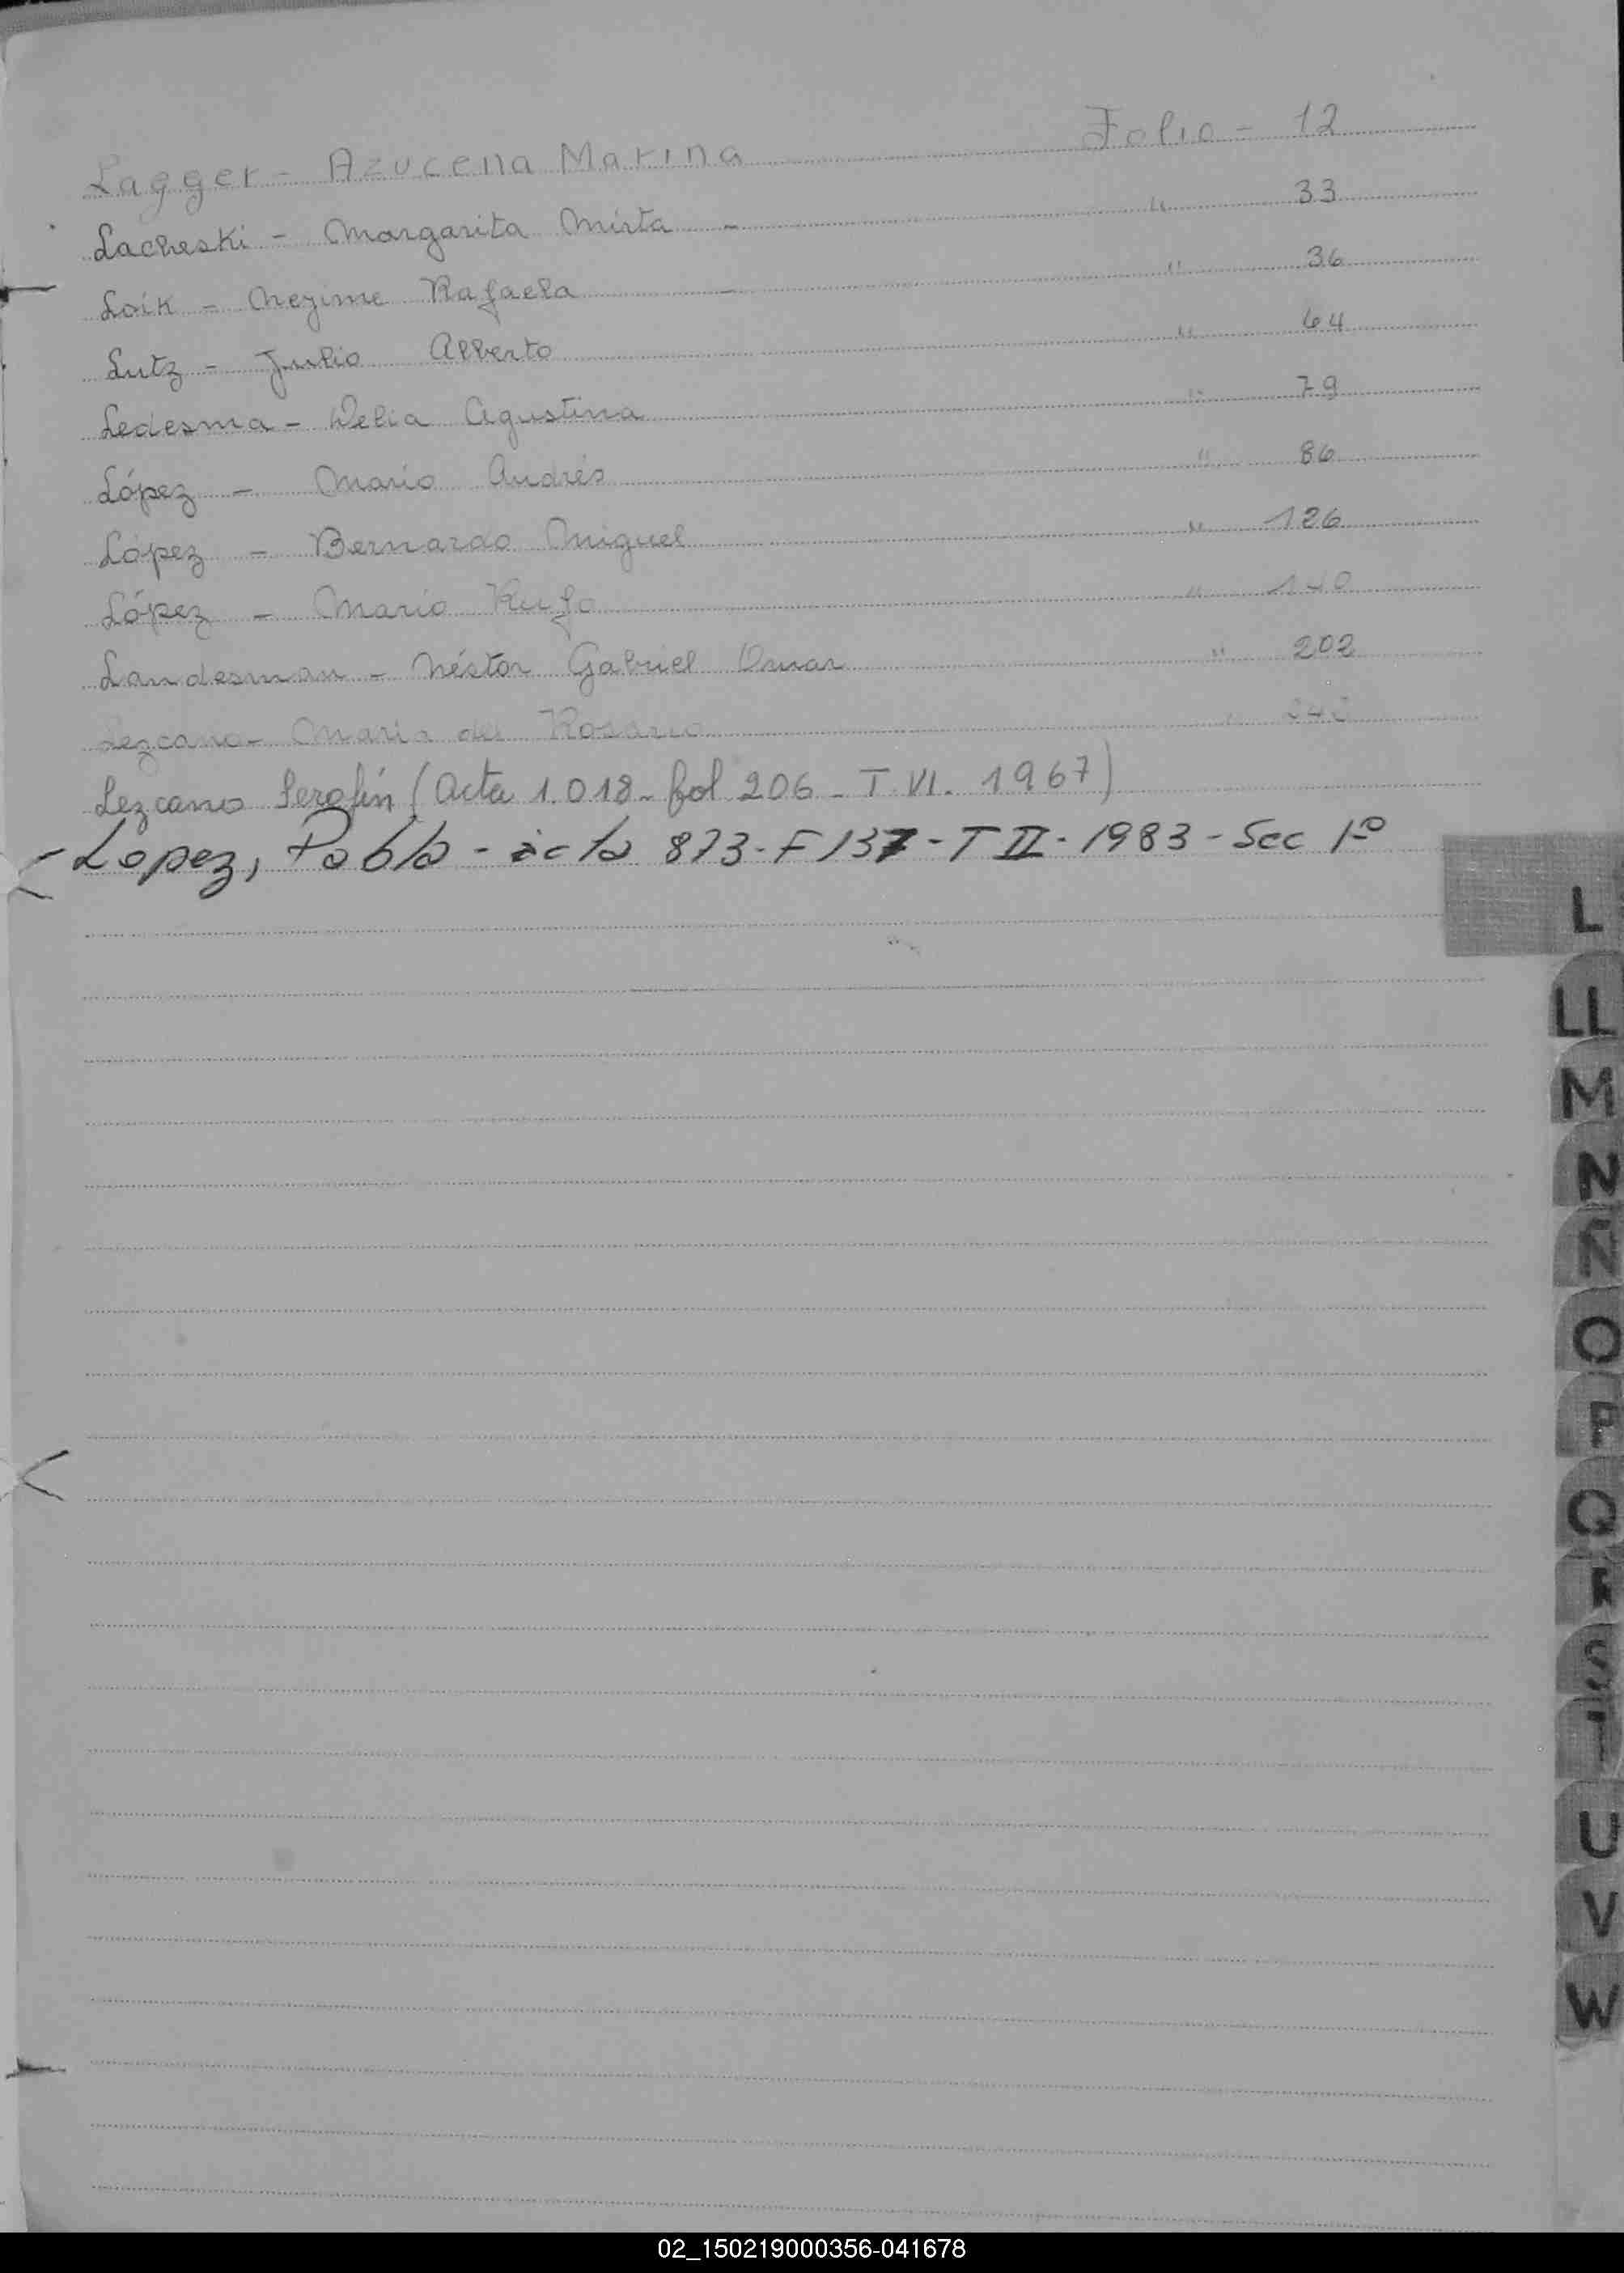 Lagger - Azucena Marina Folio - 12
Lacheski - Margarita Mirta - " 33
Loik - Neyime Rafaela - " 36
Lutz - Julio Alberto " 64
Ledesma - Delia Agustina " 79
López - Mario Andrés " 86
López - Bernardo Miguel " 126
López - Mario Rufo " 140
Landesman - Néstor Gabriel Omar " 202
Lezcano - María del Rosario "
Lezcano Serafín (Acta 1.018 - fol 206 - T. VI. 1967)
- Lopez, Pablo - acta 873 - F 137 - T II - 1983 - Sec 1º
L
LL
M
N
Ñ
O
P
Q
R
S
T
U
V
W
02_150219000356-041678